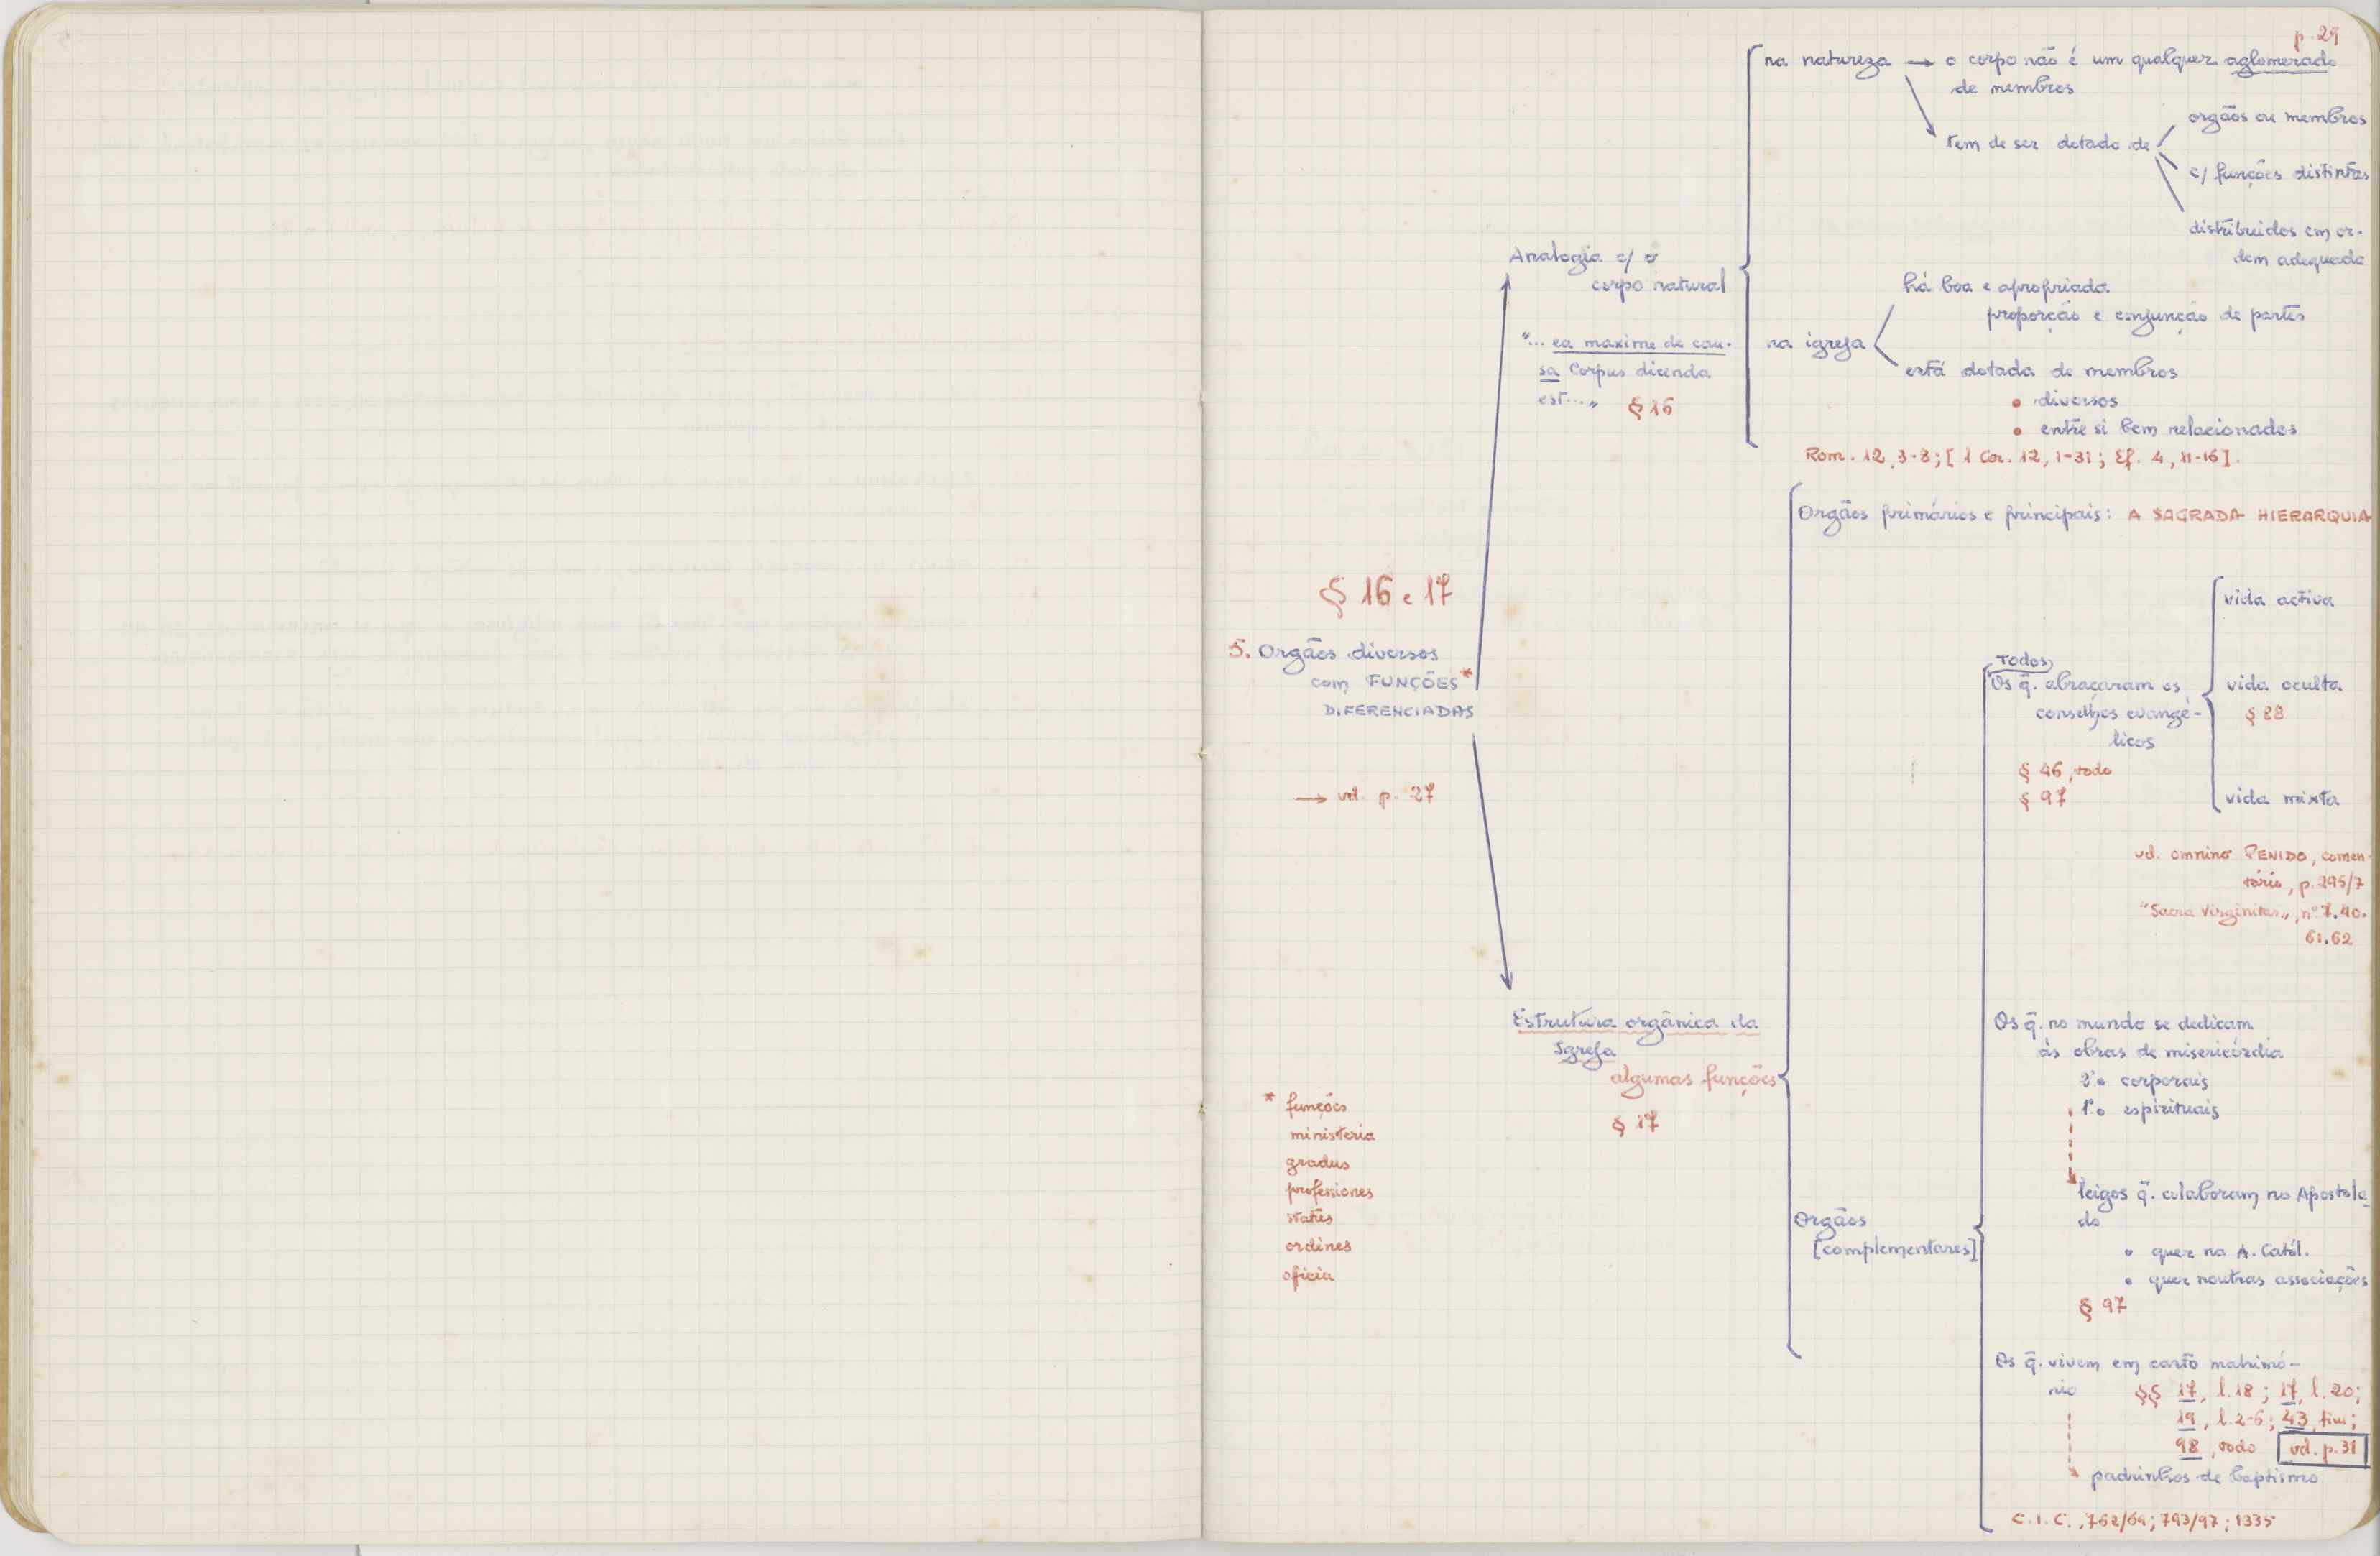 p. 29
§ 16 e 17
5. Orgãos diversos
com FUNÇÕES *
DIFERENCIADAS
→ vd. p. 27
* funções
ministeria
gradus
professiones
status
ordines
oficia
Analogia c/ o
corpo natural
"... ea maxime de cau-
sa Corpus dicenda
est..." § 16
na natureza → o corpo não é um qualquer aglomerado
de membros
tem de ser dotado de
orgãos ou membros
c/ funções distintas
distribuidos em or-
dem adequada
na igreja
há boa e apropriada
proporção e conjunção de partes
está dotada de membros
• diversos
• entre si bem relacionados
Rom. 12, 3-8; [1 Cor. 12, 1-31; Ef. 4, 11-16].
Estrutura orgânica da
Igreja
algumas funções
§ 17
Orgãos primários e principais: A SAGRADA HIERARQUIA
Orgãos
[complementares]
Todos
Os q̃. abraçaram os
conselhos evangé-
licos
§ 46, todo
§ 97
vida activa
vida oculta
§ 88
vida mixta
vd. omnino PENIDO, comen-
tário, p. 295/7
"Sacra Virginitas", nº 7. 40.
61. 62
Os q̃. no mundo se dedicam
às obras de misericórdia
2º• corporais
1º• espirituais
leigos q̃. colaboram no Apostola-
do
• quer na A. Catól.
• quer noutras associações
§ 97
Os q̃. vivem em casto matrimó-
nio §§ 17, l. 18; 17, l. 20;
19, l. 2-6; 43, fim;
98, todo vd. p. 31
padrinhos de baptismo
C.I.C., 762/69; 793/97; 1335